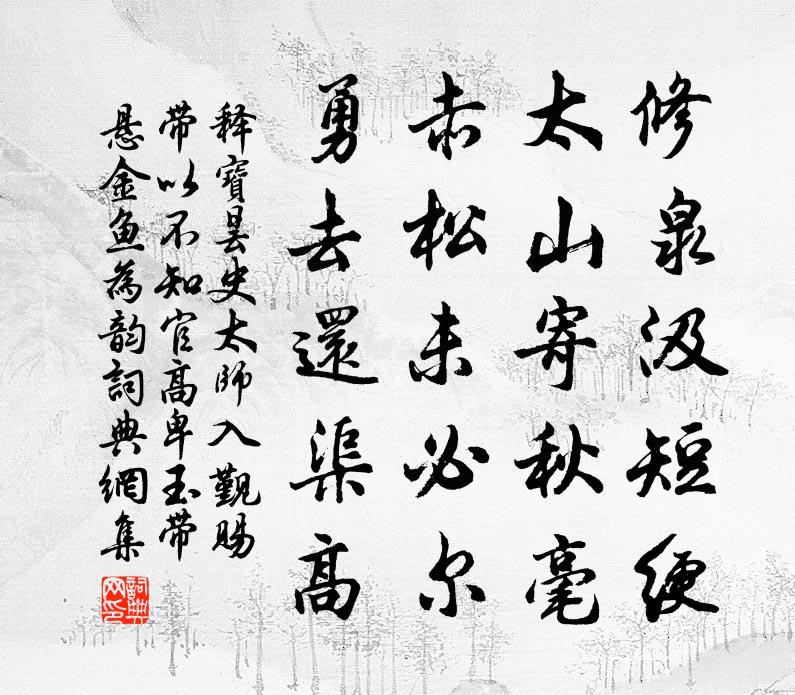 修泉汲短绠
太山寄秋毫
赤松未必尔
勇去還渠高
释寶曇史太師入觐賜
帶以不知官高卑玉带
悬金魚為韵詞典網集